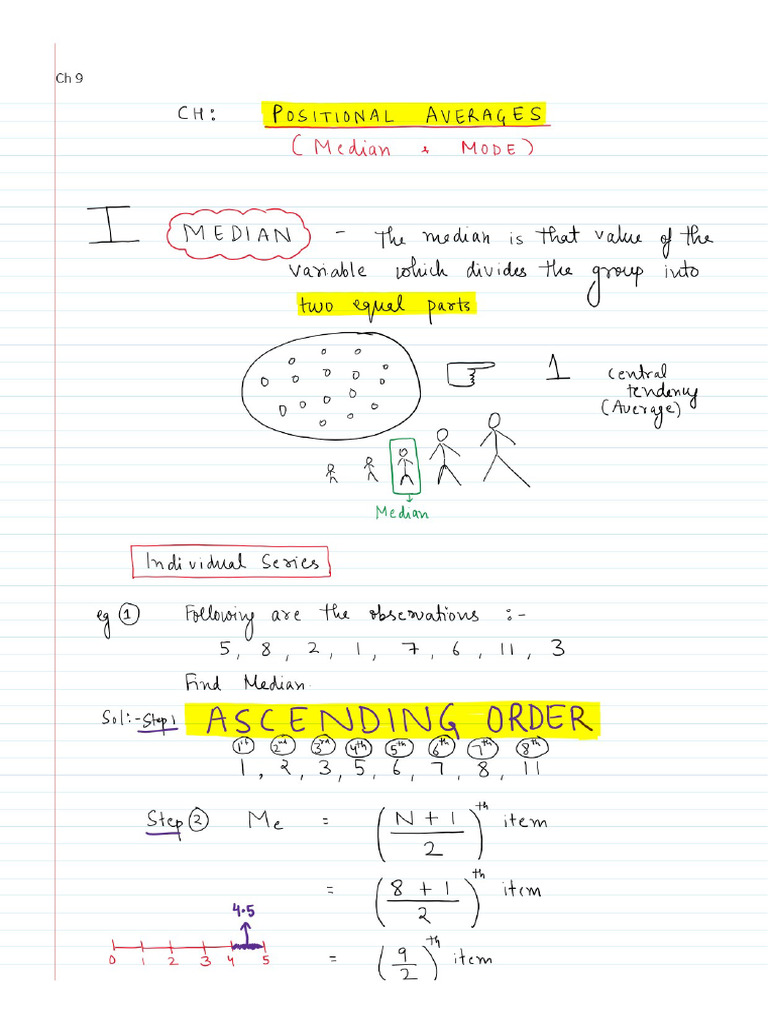 Ch 9
CH: POSITIONAL AVERAGES
(Median & MODE)
I MEDIAN - The median is that value of the
variable which divides the group into
two equal parts
1 central
tendency
(Average)
Median
Individual Series
eg ① Following are the observations :-
5, 8, 2, 1, 7, 6, 11, 3
Find Median.
Sol:- Step 1 ASCENDING ORDER
1st 2nd 3rd 4th 5th 6th 7th 8th
1, 2, 3, 5, 6, 7, 8, 11
Step ② Me = (N + 1 / 2)th item
= (8 + 1 / 2)th item
4.5
0 1 2 3 4 5
= (9 / 2)th item